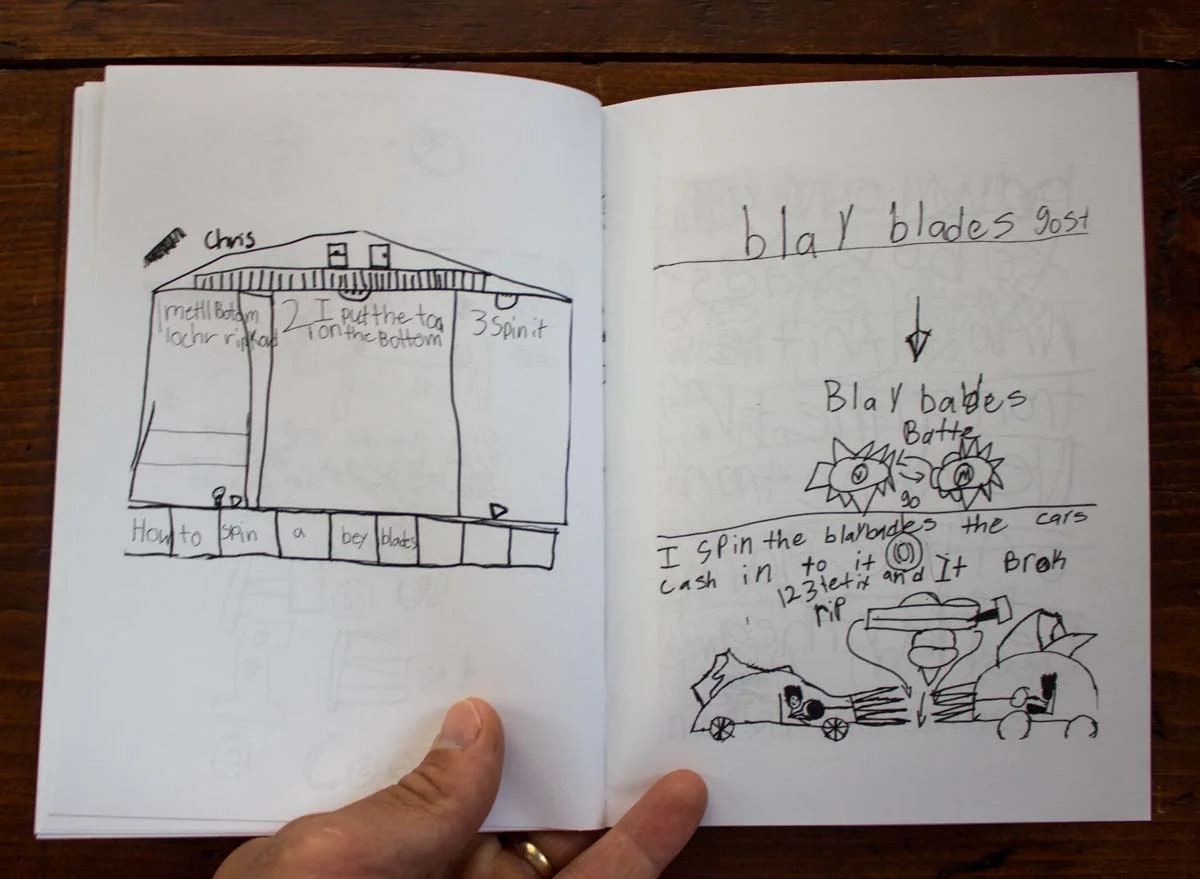 Chris
metll Bottom
lochr
2 I put the top
on the Bottom
3 Spin it
How to spin a bey blades
blay blades gost
Blay babdes
Batte
go
I spin the blaybades the cars
cash in to it and It Brok
123 let it
rip